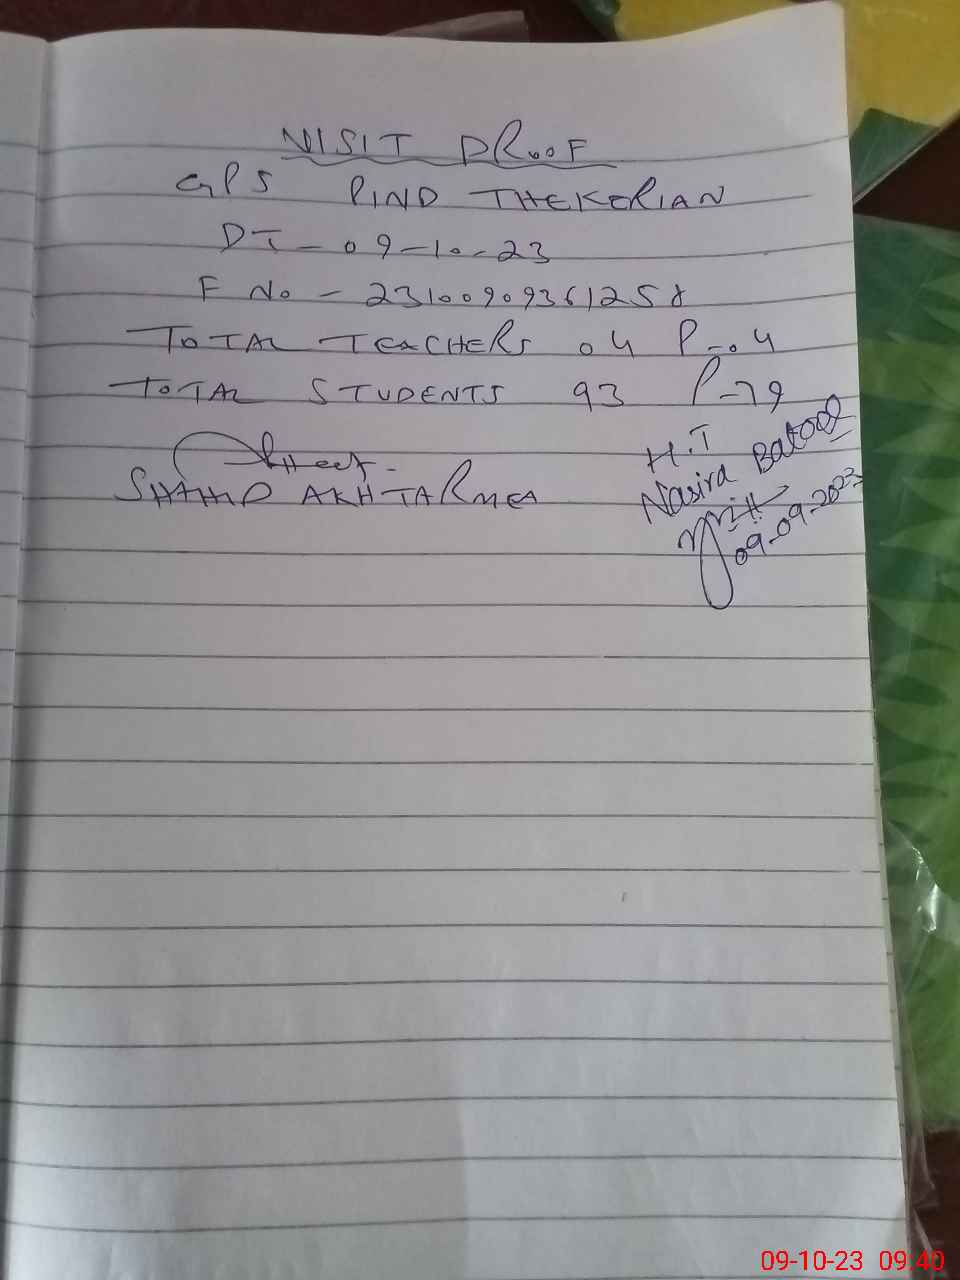 VISIT PROOF
GPS PIND THEKERIAN
DT - 09-10-23
F No - 23100909361258
TOTAL TEACHERS 04 P-04
TOTAL STUDENTS 93 P-79
SHAHID AKHTAR MEA
H.T
Nasira Batool
09-09-2023
09-10-23 09:40